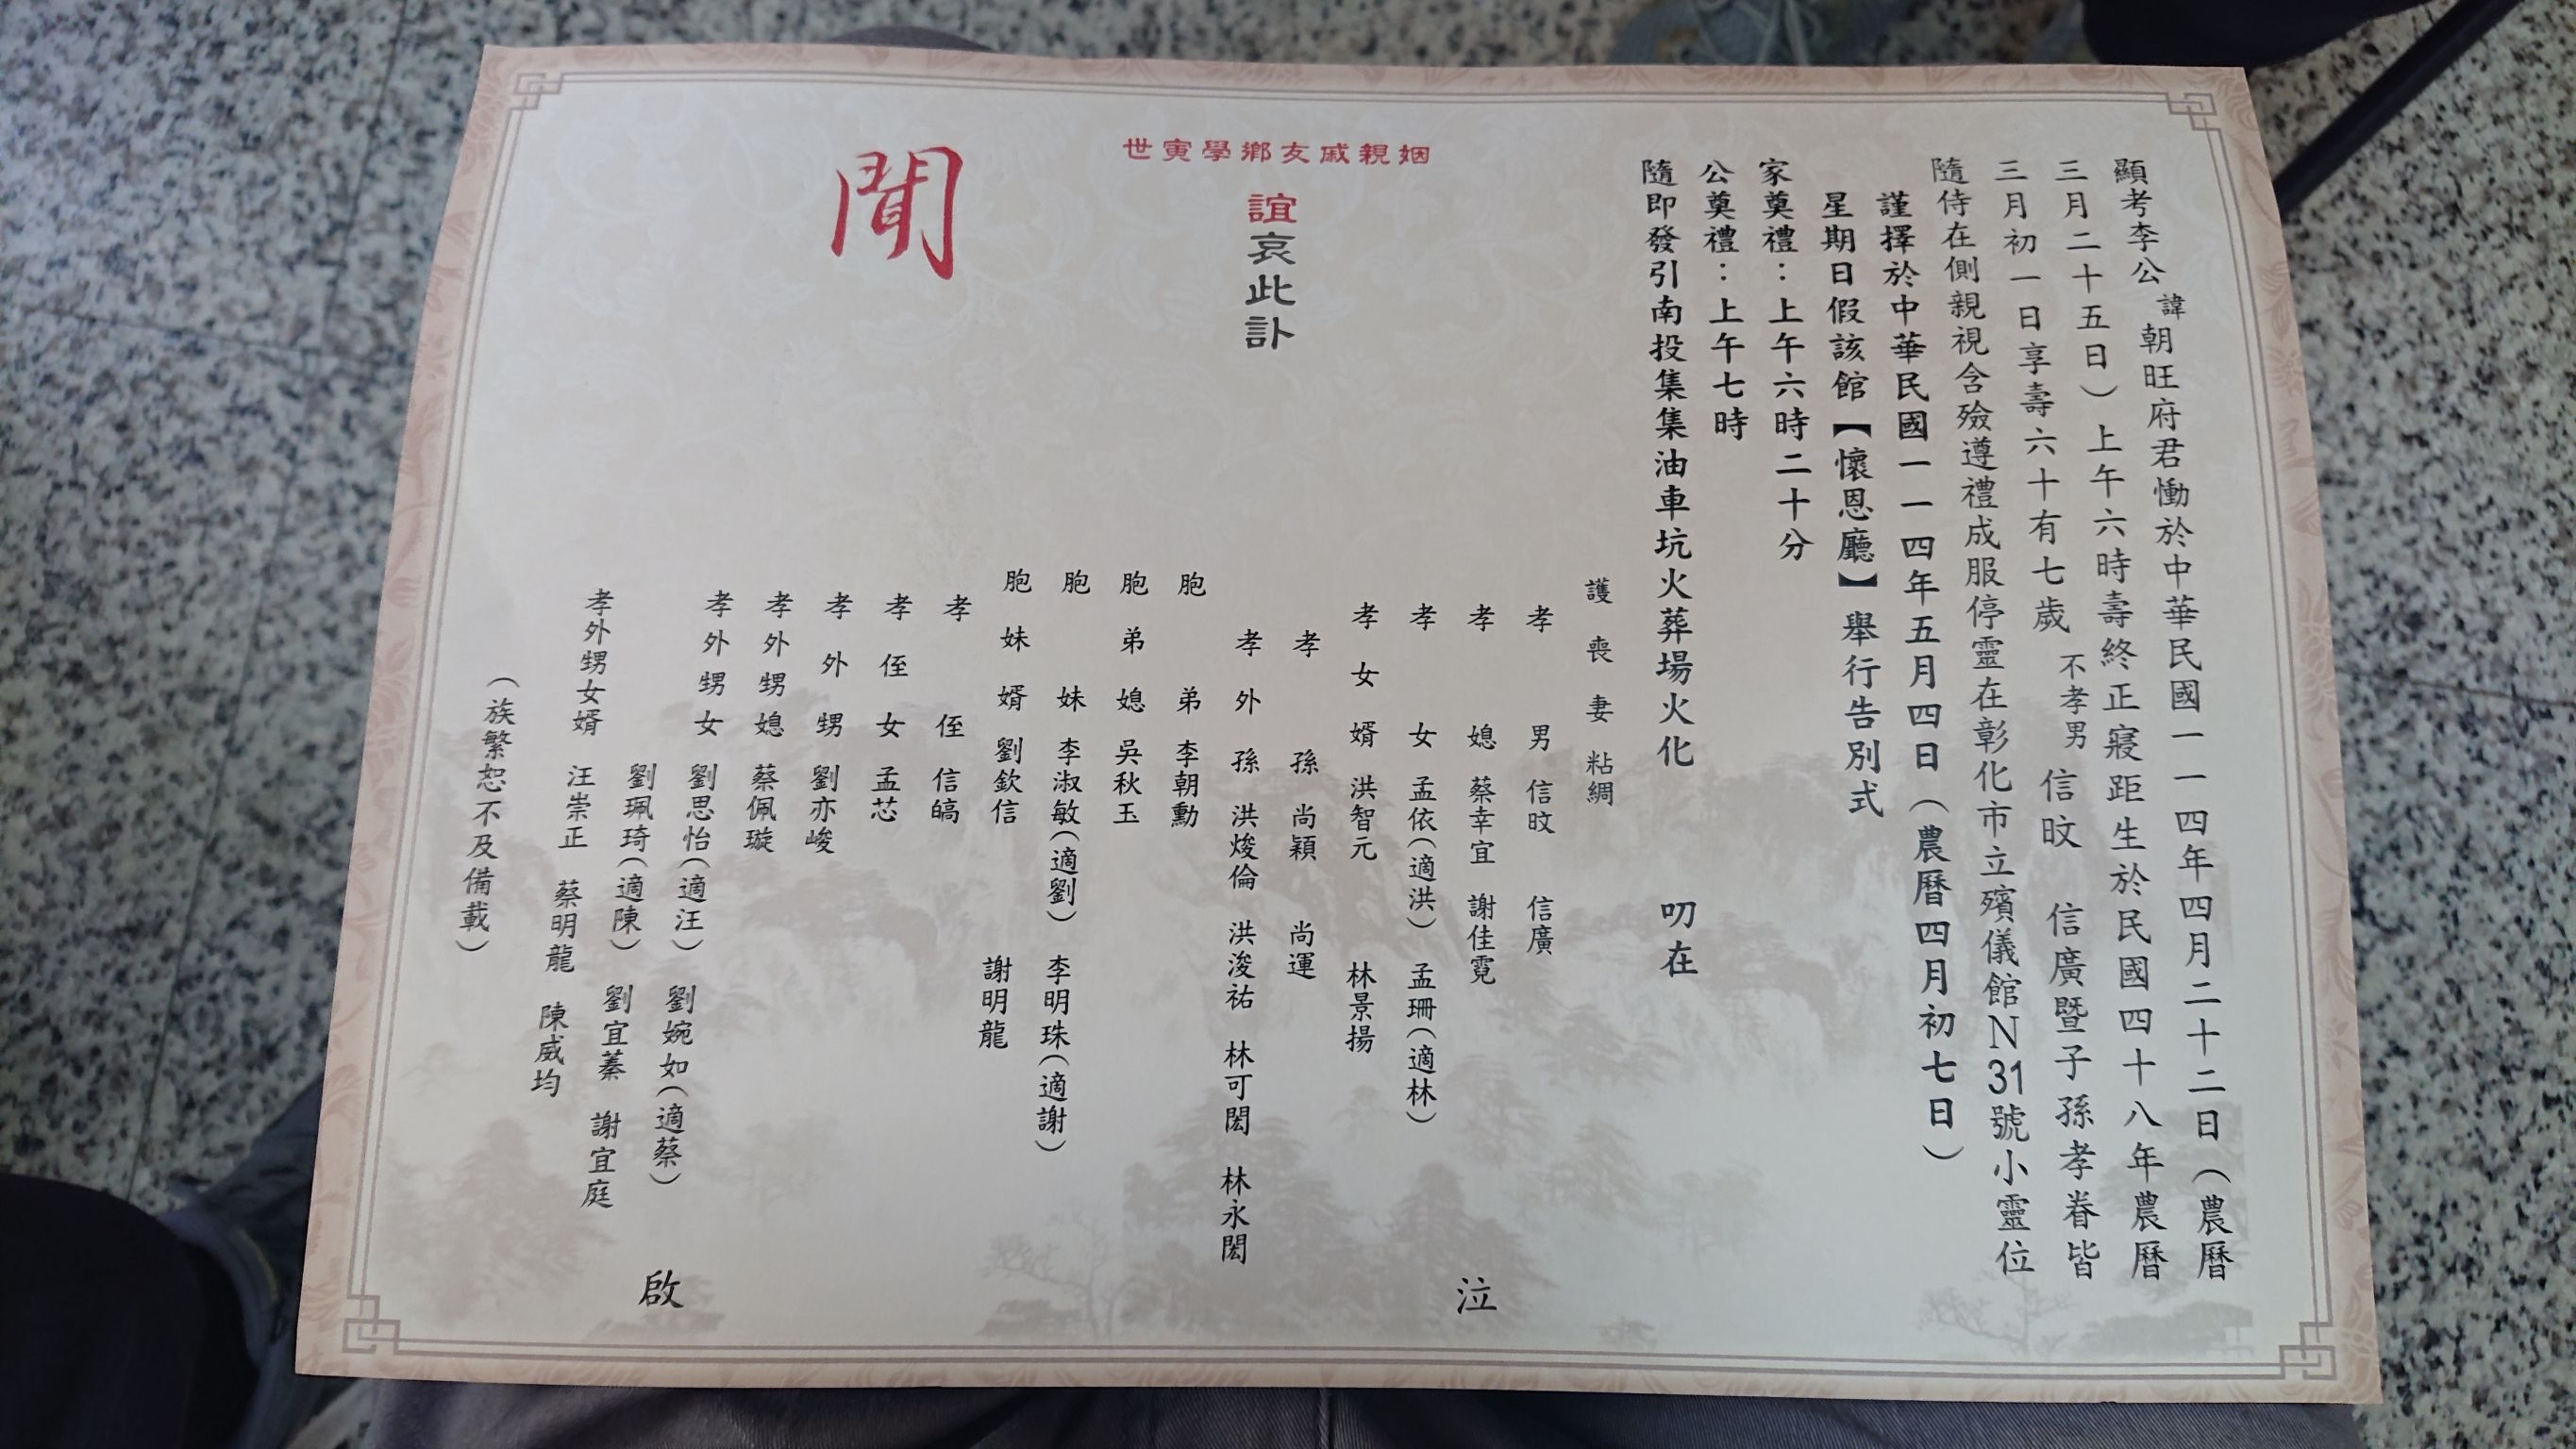 顯考李公諱朝旺府君慟於中華民國一一四年四月二十二日（農曆
三月二十五日）上午六時壽終正寢距生於民國四十八年農曆
三月初一日享壽六十有七歲不孝男信旼 信廣暨子孫孝眷皆
隨侍在側親視含殮遵禮成服停靈在彰化市立殯儀館N31號小靈位
謹擇於中華民國一一四年五月四日（農曆四月初七日）
星期日假該館【懷恩廳】舉行告別式
家奠禮：上午六時二十分
公奠禮：上午七時
隨即發引南投集集油車坑火葬場火化 叨在
護喪妻 粘綢
孝男 信旼 信廣
孝媳 蔡幸宜 謝佳霓
孝女 孟依（適洪） 孟珊（適林）
孝女婿 洪智元 林景揚
孝孫 尚穎 尚運
孝外孫 洪焌倫 洪浚祐 林可閎 林永閎
泣
姻親戚友鄉學寅世
誼哀此訃
聞
胞弟 李朝勳
胞弟媳 吳秋玉
胞妹 李淑敏（適劉） 李明珠（適謝）
胞妹婿 劉欽信 謝明龍
孝侄 信皜
孝侄女 孟芯
孝外甥 劉亦峻
孝外甥媳 蔡佩璇
孝外甥女 劉思怡（適汪） 劉婉如（適蔡）
劉珮琦（適陳） 劉宜蓁 謝宜庭
孝外甥女婿 汪崇正 蔡明龍 陳威均
（族繁恕不及備載）
啟